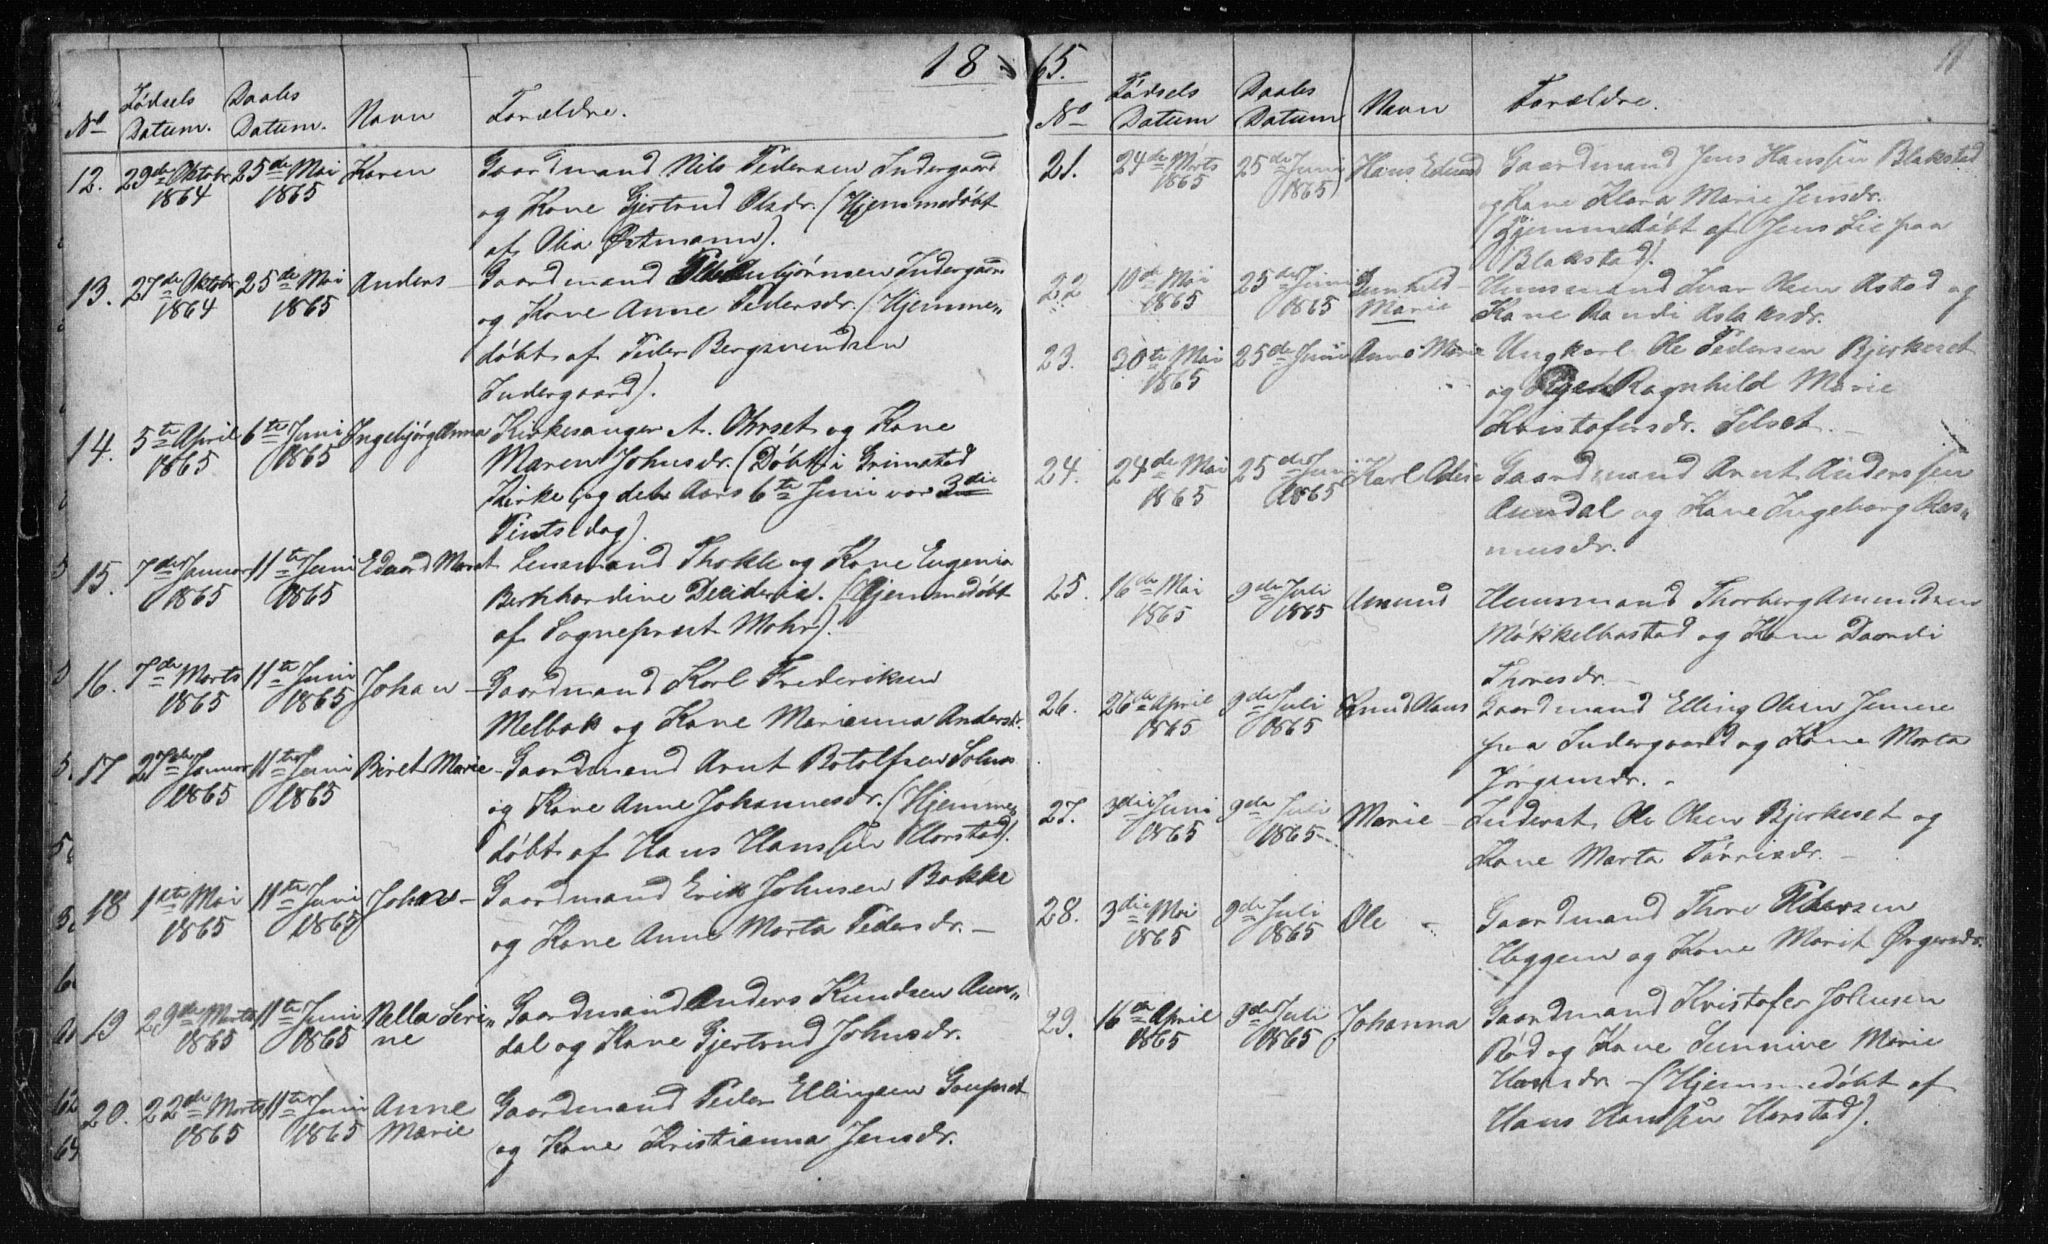 1865.
11
No Fødsels Datum. Daabs Datum. Navn Forældre.
12. 29de Oktobr 1864 25de Mai 1865 Karen Gaardmand Nils Pedersen Indergaard
og Kone Gjertrud Olsdr. (Hjemmedøbt
af Olia Østmann).
13. 27de Oktobr 1864 25de Mai 1865 Anders – Gaardmand Indergaard
og Kone Anne Pedersdr. (Hjemme„
døbt af Peder Bergsvendsen
Indergaard).
14. 5te April 1865 6te Juni 1865 Ingebjørg Anna Kirkesanger A. Ohrset og Kone
Maren Johnsdr. (Døbt i Grimstad
Kirke, og det Aars 6te Juni var 3die
Pintsedag).
15. 7de Januar 1865 11te Juni 1865 Edvard Lensmand Thokle og Kone Eugenia
Berkhardine Desideria. (Hjemmedøbt
af Sogneprest Mohr).
16. 7de Marts 1865 11te Juni 1865 Johan – Gaardmand Karl Frederiksen
Melbak og Kone Marianna Andersdr.
17 27de Januar 1865 11te Juni 1865 Beret Marie – Gaardmand Arnt Botolfsen
og Kone Anne Johannesdr. (Hjemme„
døbt af Hans Hanssen Harstad).
18 1ste Mai 1865 11te Juni 1865 Johan – Gaardmand Erik Johnsen Bakke
og Kone Anne Marta Pedersdr. –
19 29de Marts 1865 11te Juni 1865 Pella Seri„
ne Gaardmand Anders Knudsen Aun„
dal og Kone Gjertrud Johnsdr.
20. 22de Marts 1865 11te Juni 1865 Anne
Marie Gaardmand Peder Ellingsen Gaupset
og Kone Kristianna Jensdr.
No Fødsels Datum Daabs Datum Navn Forældre.
21. 24de Marts 1865 25de Juni 1865 Hans Edvard Gaardmand Jens Hanssen Blakstad
og Kone Klara Marie Jensdr.
(Hjemmedøbt af Jens Lie paa
Blakstad).
22 10de Mai 1865 25de Juni 1865 Gunhild
Marie – Huusmand Ivar Olsen Astad og
Kone Randi Aslaksdr.
23. 30te Mai 1865 25de Juni Anne Marie Ungkarl Ole Pedersen Bjerkeset
og Pigen Ragnhild Marie
Kristofersdr. Silset. –
24. 24de Mai 1865 25de Juni 1865 Karl Gaardmand Arnt Anderssen
Aundal og Kone Ingeborg Ras„
musdr.
25. 16de Mai 1865 9de Juli 1865 Amund Huusmand Thorberg Amundsen
Møkkelbostad og Kone Daardi
Thoresdr. –
26. 26de April 1865 9de Juli 1865 Knud Olaus Gaardmand Elling Olsen Jemene
paa Indergaard og Kone Marta
Jørgensdr. –
27. 3die Juni 1865 9de Juli 1865 Marie – Inderst Ole Olsen Bjerkeset og
Kone Marta Tørrisdr. –
28. 3die Mai 1865 9de Juli 1865 Ole – Gaardmand Thore Pedersen
Heggem og Kone Marit Ørgersdr.
29. 16de April 1865 9de Juli 1865 Johanna Gaardmand Kristofer Johnsen
Rød og Kone Sunnive Marie
Hansdr – (Hjemmedøbt af
Hans Hanssen Harstad).